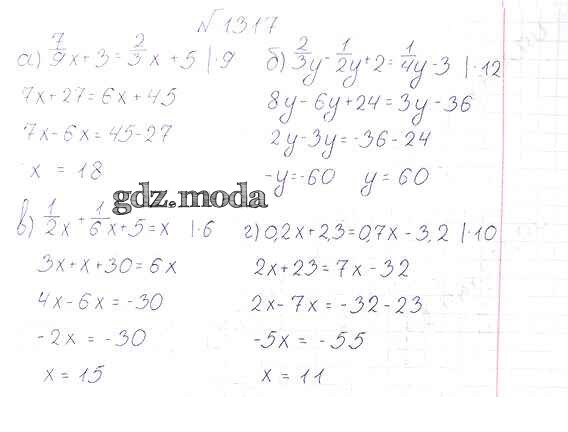 №1317
а) 7/9x+3=2/3x+5 |·9
7x+27=6x+45
7x-6x=45-27
x = 18
б) 2/3y-1/2y+2=1/4y-3 |·12
8y-6y+24=3y-36
2y-3y=-36-24
-y=-60 y=60
gdz.moda
в) 1/2x+1/6x+5=x |·6
3x+x+30=6x
4x-6x=-30
-2x=-30
x=15
г) 0,2x+2,3=0,7x-3,2 |·10
2x+23=7x-32
2x-7x=-32-23
-5x=-55
x=11